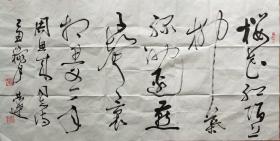 樱花红陌上
柳叶
绿池边燕
子声声里
相思又一年
周恩来